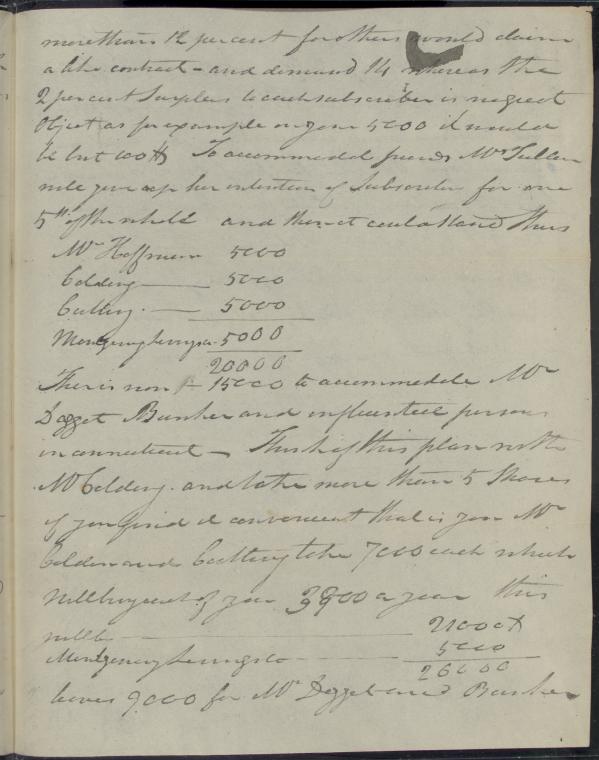 more than 12 per cent for others would claim
a like contract - and demand 14 whereas the
2 per cent Surplus to each subscriber is no great
Object as for example on your 5000 it would
be but 100 To accommodate friends Mr Fulton
will give up his intention of Subscribing for one
5th of the whole and then it could stand thus
Mr Hoffman 5000
Colden 5000
Cutting 5000
Montgomery Livingston 5000
20000
There is now 15000 to accommodate Mr
Dogget Bunker and influential persons
in connecticut - Think of this plan with
Mr Colden. and take more than 5 Shares
if you find it convenient that is you Mr
Colden and Cutting take 7000 each which
will bring each of you a year this
will be 21000
Montgomery Livingston 5000
26000
leaves 9000 for Mr Dogget and Bunker